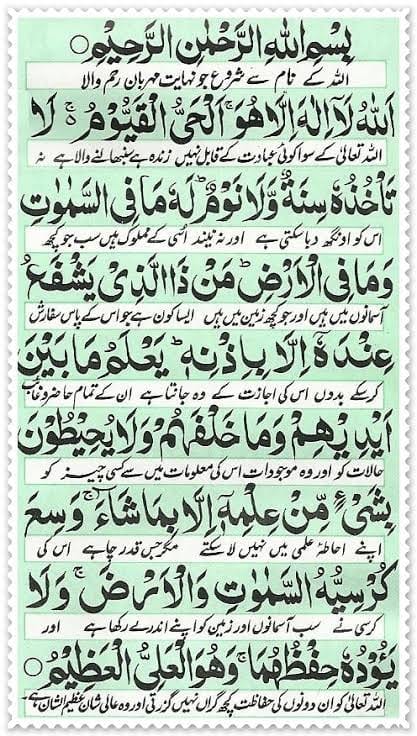 بِسْمِ اللهِ الرَّحْمٰنِ الرَّحِيْمِ ○
اللہ کے نام سے شروع جو نہایت مہربان رحم والا
اَللهُ لَآ اِلٰهَ اِلَّا هُوَ ۚ اَلْحَيُّ الْقَيُّوْمُ ۚ لَا
اللہ تعالیٰ کے سوا کوئی عبادت کے قابل نہیں زندہ ہے سنبھالنے والا ہے نہ
تَاْخُذُهٗ سِنَةٌ وَّلَا نَوْمٌ ؕ لَهٗ مَا فِي السَّمٰوٰتِ
اس کو اونگھ دبا سکتی ہے اور نہ نیند اسی کے مملوک ہیں سب جو کچھ
وَمَا فِي الْاَرْضِ ؕ مَنْ ذَا الَّذِيْ يَشْفَعُ
آسمانوں میں ہیں اور جو کچھ زمین میں ہیں ایسا کون ہے جو اس کے پاس سفارش
عِنْدَهٗٓ اِلَّا بِاِذْنِهٖ ؕ يَعْلَمُ مَا بَيْنَ
کر سکے بدوں اس کی اجازت کے وہ جانتا ہے ان کے تمام حاضر و غائب
اَيْدِيْهِمْ وَمَا خَلْفَهُمْ ۚ وَلَا يُحِيْطُوْنَ
حالات کو اور وہ موجودات اس کی معلومات میں سے کسی چیز کو
بِشَيْءٍ مِّنْ عِلْمِهٖٓ اِلَّا بِمَا شَآءَ ۚ وَسِعَ
اپنے احاطۂ علمی میں نہیں لا سکتے مگر جس قدر چاہے اس کی
كُرْسِيُّهُ السَّمٰوٰتِ وَالْاَرْضَ ۚ وَلَا
کرسی نے سب آسمانوں اور زمین کو اپنے اندر لے رکھا ہے اور
يَـُٔوْدُهٗ حِفْظُهُمَا ۚ وَهُوَ الْعَلِيُّ الْعَظِيْمُ ○
اللہ تعالیٰ کو ان دونوں کی حفاظت کچھ گراں نہیں گزرتی اور وہ عالی شان عظیم الشان ہے۔